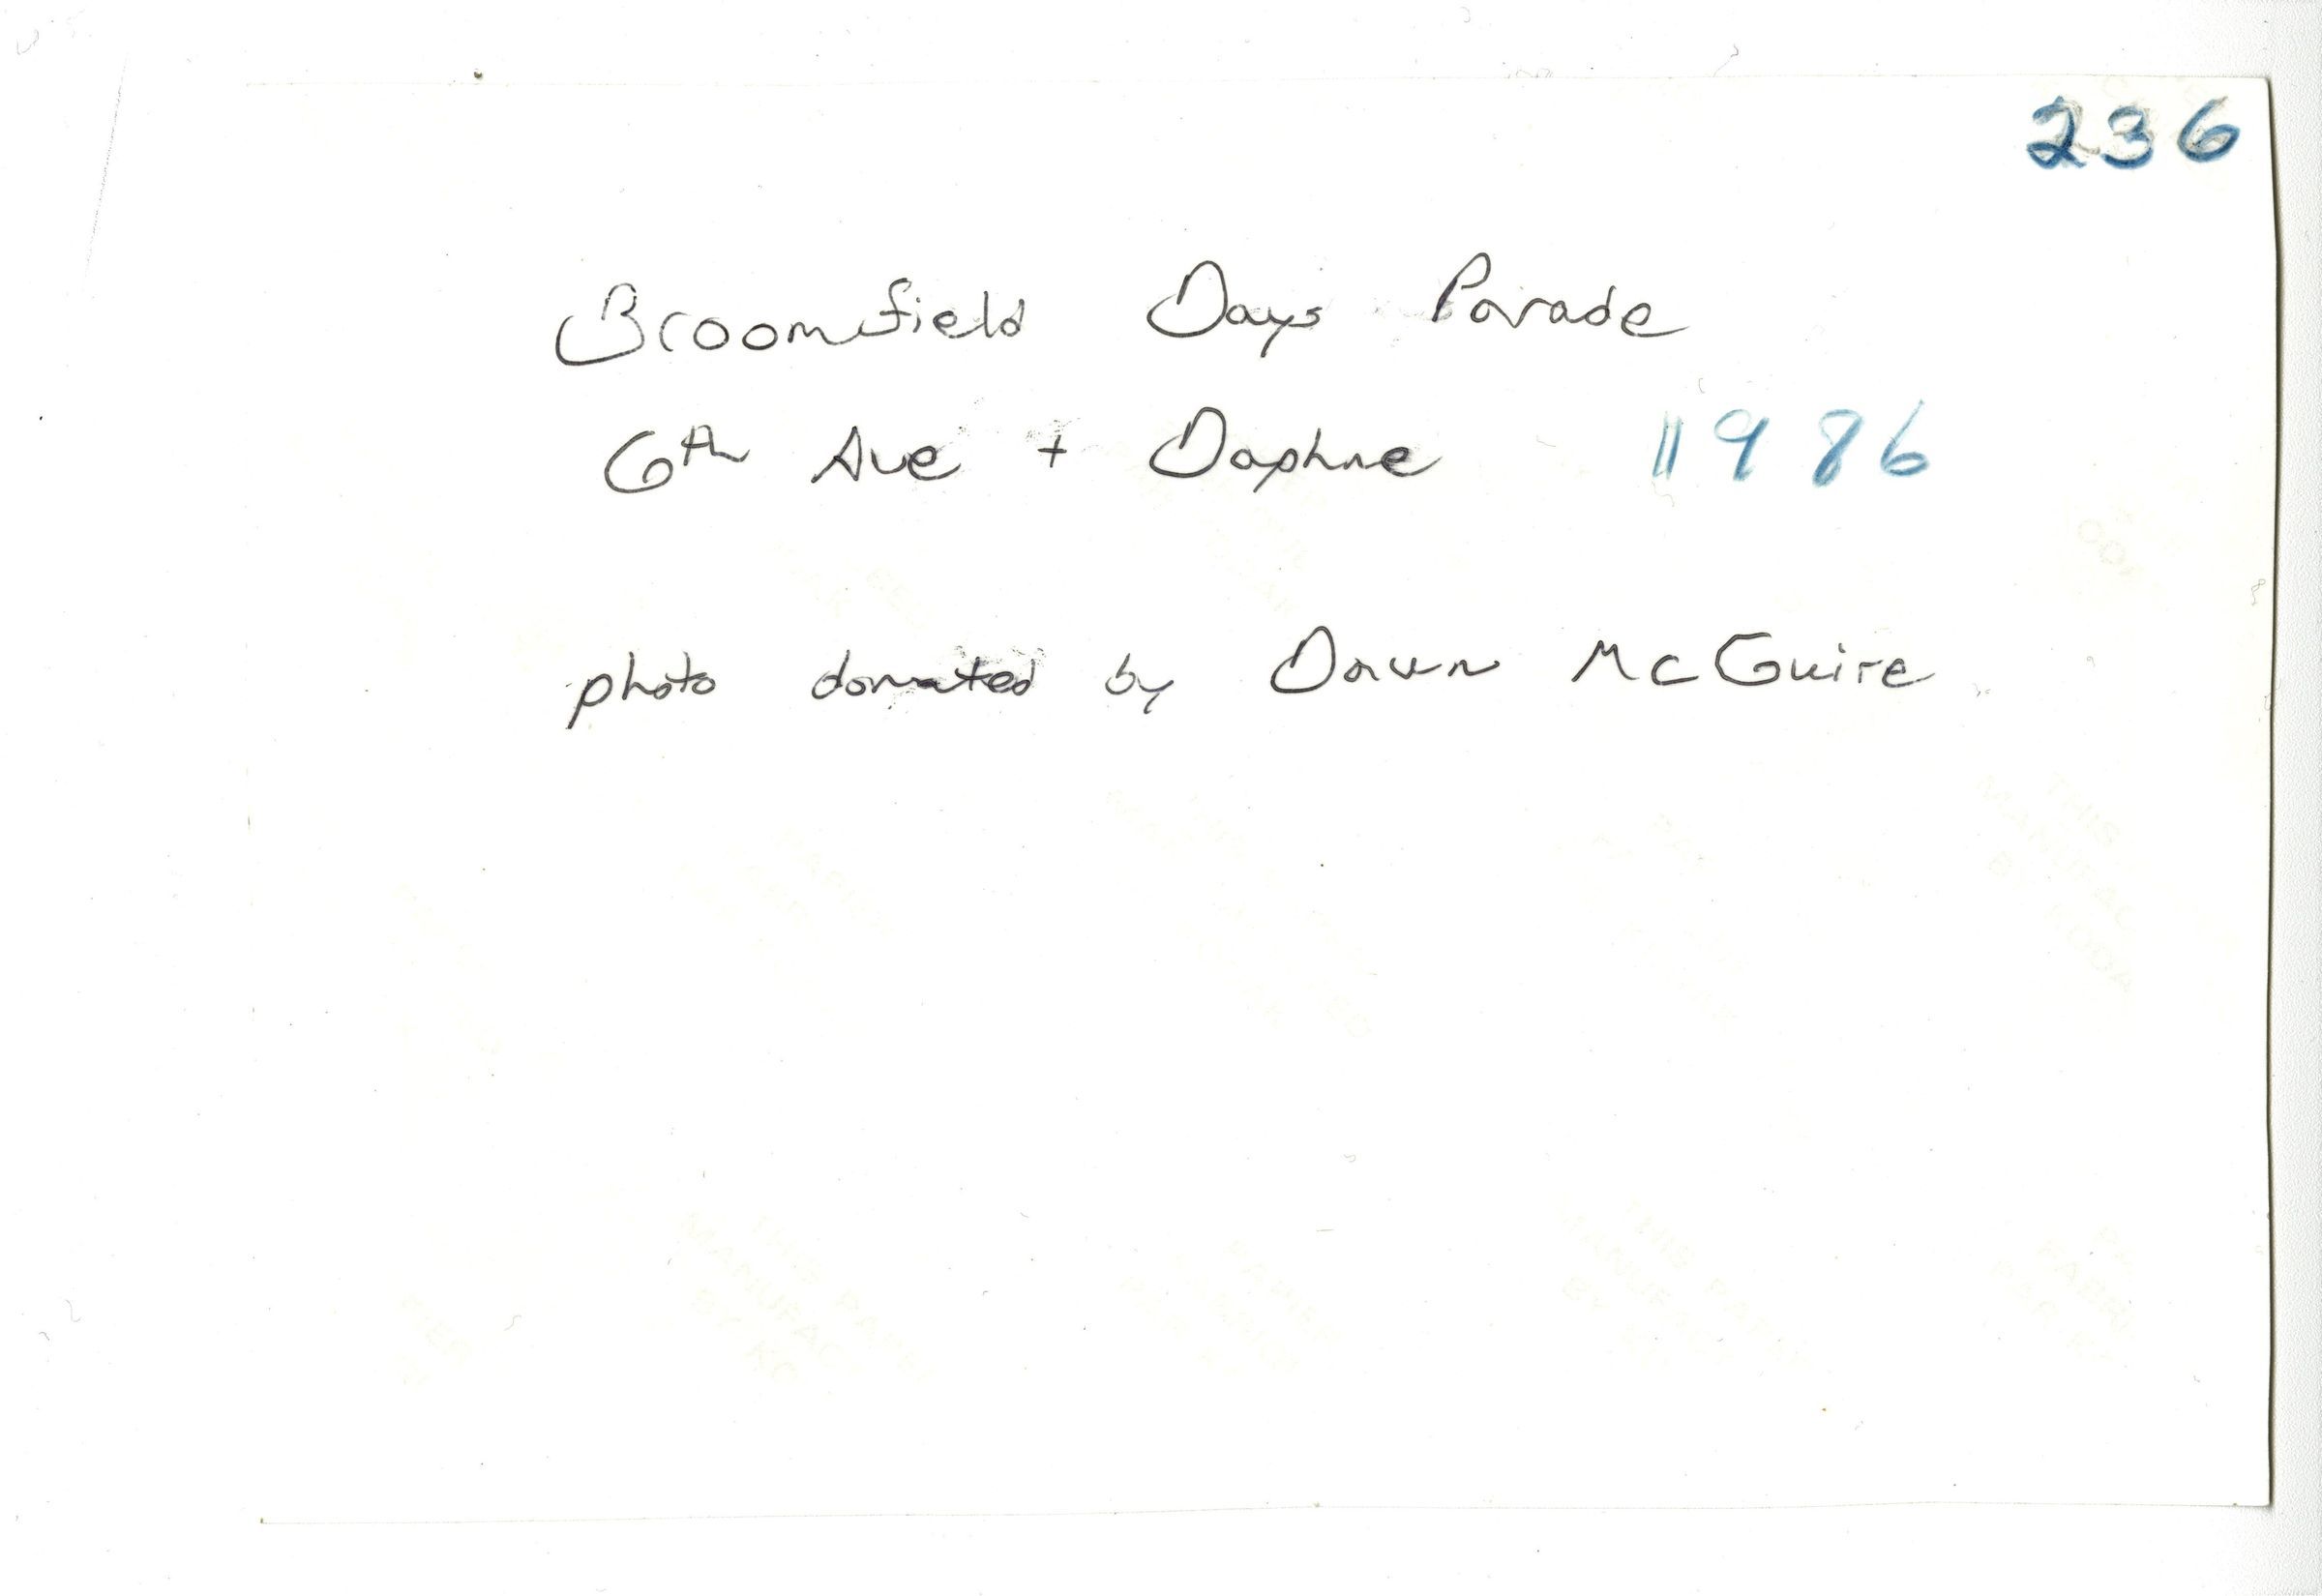 236
Broomfield Days Parade
6th Ave + Daphne 1986
photo donated by Dawn McGuire